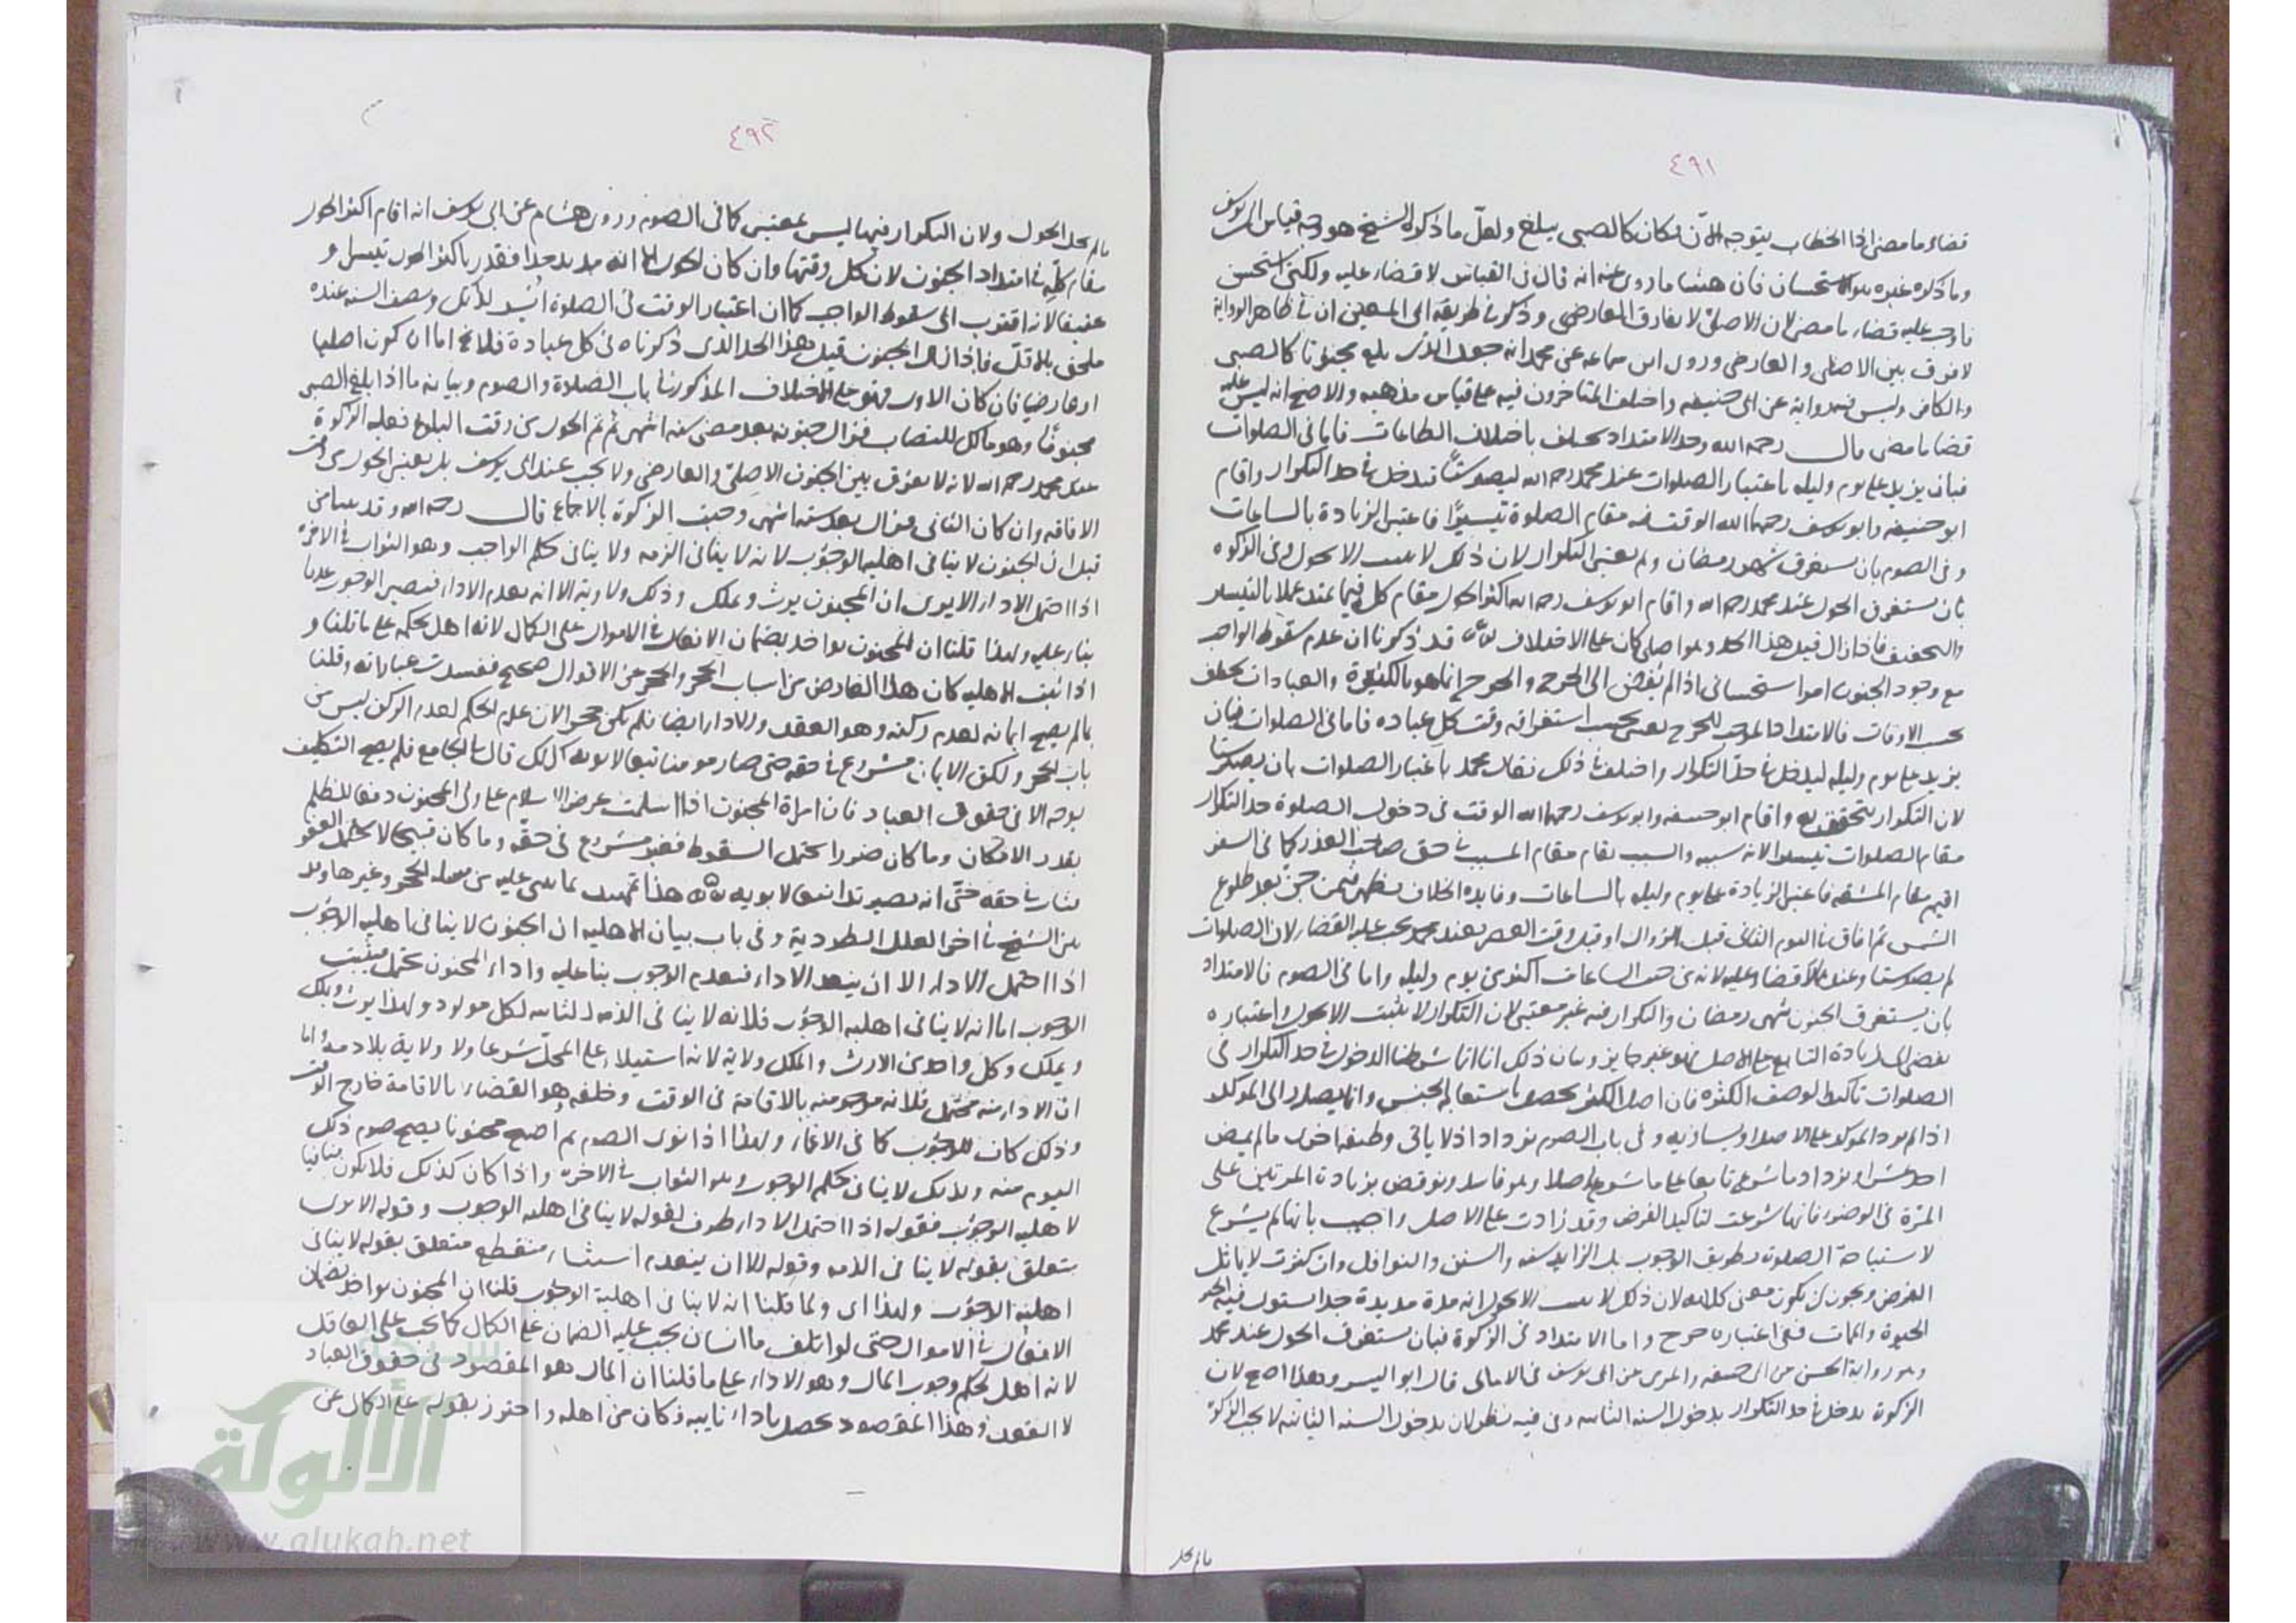 ٤٩١
قضاء ما مضى اذا الخطاب يتوجه الآن فكان كالصبي يبلغ ولعل ما ذكره الشيخ هو قياس
وما ذكره غيره هو الاستحسان فان هشاما روى عنه انه قال في القياس لا قضاء عليه ولكني استحسن
فاوجب عليه قضاء ما مضى لان الاصلي لا يفارق العارضي وذكر في طريقة ابي المعين ان في ظاهر الرواية
لا فرق بين الاصلي والعارضي وروى ابن سماعه عن محمد انه جعل الذي بلغ مجنونا كالصبي
والكافر وليس فيه رواية عن ابي حنيفه واختلف المتاخرون فيه على قياس مذهبه والاصح انه ليس عليه
قضا ما مضى قال رحمه الله وحد الامتداد يختلف باختلاف الطاعات فاما في الصلوات
فبان يزيد على يوم وليله باعتبار الصلوات عند محمد رحمه الله ليصير ستا فيدخل في حد التكرار واقام
ابو حنيفه وابو يوسف رحمهما الله الوقت فيه مقام الصلوة تيسيرا فاعتبر الزيادة بالساعات
وفي الصوم بان يستغرق شهر رمضان ولم يعتبر التكرار لان ذلك لا يثبت الا بحول وفي الزكوة
بان يستغرق الحول عند محمد رحمه الله واقام ابو يوسف رحمه الله اكثر الحول مقام كله فيما يمتد عملا بالتيسير
والتخفيف فاذا زال قبل هذا الحد وهو اصلي كان على الاختلاف قد ذكرنا ان عدم سقوط الواجب
مع وجود الجنون امر استحساني اذا لم يفض الى الحرج والحرج انما هو بالكثرة والعبادات تختلف
بحسب الاوقات فالامتداد الموجب للحرج يعتبر بحسب استغراقه وقت كل عباده فاما في الصلوات فبان
يزيد على يوم وليله ليدخل في حد التكرار واختلف في ذلك فقال محمد باعتبار الصلوات بان يصير ستا
لان التكرار يتحقق به واقام ابو حنيفه وابو يوسف رحمهما الله الوقت في دخول الصلوة حد التكرار
مقام الصلوات تيسيرا لانه سببه والسبب يقام مقام المسبب في حق صاحب العذر كما في السفر
اقيم مقام المشقه فاعتبر الزيادة على يوم وليله بالساعات وفايدة الخلاف تظهر فيمن جن بعد طلوع
الشمس ثم افاق في اليوم الثاني قبل الزوال او قبل وقت العصر فعند محمد يجب عليه القضاء لان الصلوات
لم يصر ستا وعندهما لا قضاء عليه لانه من حيث الساعات اكثر من يوم وليله واما في الصوم فالامتداد
بان يستغرق الجنون شهر رمضان والتكرار فيه غير معتبر لان التكرار لا يثبت الا بحول واعتباره
يفضي الى زيادة التابع على الاصل فهو غير جايز وبيان ذلك انا انما شرطنا الدخول في حد التكرار في
الصلوات تاكيدا لوصف الكثرة فان اصل الكثرة يحصل باستيعاب الجنس وانما يصار الى الموكد
اذا لم يزد الموكد على الاصل او يساويه وفي باب الصوم يزداد اذ لا ياتي وظيفة اخرى ما لم يمض
احد عشر شهرا ويزداد ما شرع تابعا على ما شرع اصلا وهو فاسد ونوقض بزيادة المرتين على
المرة في الوضوء فانها شرعت لتاكيد الفرض وقد زادت على الاصل واجيب بانها لم يشرع
لاستباحة الصلوة بطريق الوجوب بل الزايد سنه والسنن والنوافل وان كثرت لا يماثل
الفرض ويجوز ان يكون معنى كلامه لان ذلك لا يثبت الا بحول انه مدة مديدة جدا استوى فيه
الحيوة والممات ففي اعتباره حرج واما الامتداد في الزكوة فبان يستغرق الحول عند محمد
وهو رواية الحسن عن ابي حنيفه والمروي عن ابي يوسف في الامالي قال ابو اليسر وهذا اصح لان
الزكوة يدخل في حد التكرار بدخول السنه الثانيه وفيه نظر لان بدخول السنه الثانيه لا يجب الزكوة
ما لم يحل
٤٩٢
ما لم يحل الحول ولان التكرار فيها ليس بمعتبر كما في الصوم وروى هشام عن ابي يوسف انه اقام اكثر الحول
مقام كله في امتداد الجنون لان كل وقتها وان كان الحول الا انه مديد جدا فقدر باكثر الحول تيسيرا و
تخفيفا لانه اقرب الى سقوط الواجب كما ان اعتبار الوقت في الصلوة ايسر للاقل ونصف السنه عنده
ملحق بالاقل فاذا زال الجنون قبل هذا الحد الذي ذكرناه في كل عبادة فلا يخ اما ان يكون اصليا
او عارضيا فان كان الاول فهو على الاختلاف المذكور في باب الصلاة والصوم وبيانه ما اذا بلغ الصبي
مجنونا وهو مالك للنصاب فزال جنونه بعد مضي ستة اشهر ثم تم الحول من وقت البلوغ فعليه الزكوة
عند محمد رحمه الله لانه لا يفرق بين الجنون الاصلي والعارضي ولا يجب عند ابي يوسف بل يعتبر الحول من وقت
الافاقه وان كان الثاني فزال بعد سته اشهر وجبت الزكوة بالاجماع قال رحمه الله وقد بينا من
قبل ان الجنون لا ينافي اهلية الوجوب لانه لا ينافي الذمه ولا ينافي حكم الواجب وهو الثواب في الاخره
اذا احتمل الاداء الا يرى ان المجنون يرث ويملك وذلك ولاية الا انه يعدم الاداء فيصير الوجوب عدما
بناء عليه ولهذا قلنا ان المجنون يواخذ بضمان الافعال في الاموال على الكمال لانه اهل لحكمه على ما قلنا و
اذا ثبت الاهليه كان هذا العارض من اسباب الحجر والحجر عن الاقوال صحيح ففسدت عباراته وقلنا
ما لم يصح ايمانه لعدم ركنه وهو العقد والاداء ايضا فلم يكن حجرا لان عدم الحكم لعدم الركن ليس من
باب الحجر ولكن الايمان مشروع في حقه حتى صار مومنا تبعا لابويه كذلك قال في الجامع فلم يصح التكليف
بوجه الا في حقوق العباد فان امراة المجنون اذا اسلمت عرض الاسلام على ولي المجنون دفعا للظلم
بقدر الامكان وما كان ضررا يحتمل السقوط فغير مشروع في حقه وما كان قبيحا لا يحتمل العفو
فثابت في حقه حتى انه يصير مرتدا تبعا لابويه هذا تمهيد لما يبني عليه من مسايل الحجر وغيرها وقد
بين الشيخ في اخر العلل الطردية وفي باب بيان الاهليه ان الجنون لا ينافي اهليه الوجوب
اذا احتمل الاداء الا ان ينعدم الاداء فينعدم الوجوب بناء عليه واداء المجنون محتمل فيثبت
الوجوب اما انه لا ينافي اهليه الوجوب فلانه لا ينافي الذمه الثابته لكل مولود ولهذا يرث ويملك
ويملك وكل واحد من الارث والملك ولاية لانه استيلاء على المحل شرعا ولا ولاية بلا ذمة واما
ان الاداء منه محتمل فلانه مرجو منه بالافاقة في الوقت وخلفه هو القضاء بالافاقة خارج الوقت
وذلك كاف للوجوب كما في الاغماء ولهذا اذا نوى الصوم ثم اصبح مجنونا يصح صوم ذلك
اليوم منه وكذلك لا ينافي حكم الوجوب وهو الثواب في الاخره واذا كان كذلك فلا يكون منافيا
لاهليه الوجوب فقوله اذا احتمل الاداء ظرف لقوله لا ينافي اهليه الوجوب وقوله الا يرى
يتعلق بقوله لا ينافي الذمه وقوله الا ان ينعدم استثناء منقطع متعلق بقوله لا ينافي
اهلية الوجوب ولهذا اى ولما قلنا انه لا ينافي اهلية الوجوب قلنا ان المجنون يواخذ بضمان
الافعال في الاموال حتى لو اتلف مال انسان يجب عليه الضمان على الكمال كما يجب على العاقل
لانه اهل لحكم وجوب المال وهو الاداء على ما قلنا ان المال هو المقصود في حقوق العباد
لا الفعل وهذا المقصود يحصل باداء نايبه فكان من اهله واحترز بقوله على الكمال عن
الألوكة
www.alukah.net